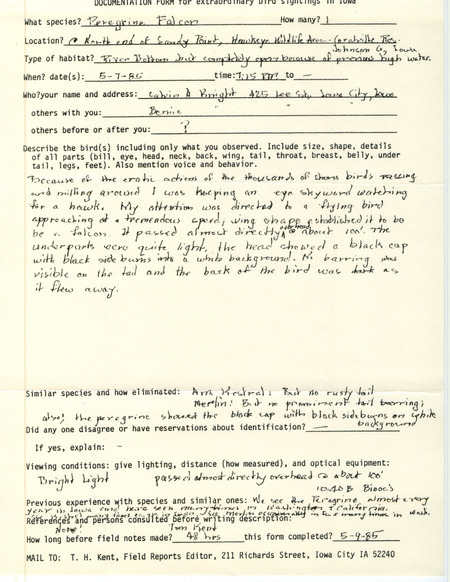 DOCUMENTATION FORM for extraordinary bird sightings in Iowa
What species? Peregrine Falcon How many? 1
Location? @ North end of Sandy Point, Hawkeye Wildlife Area - Coralville Res.
Johnson Co, Iowa
Type of habitat? River Bottom but completely open because of previous high water.
When? date(s): 5-7-85 time: 7:15 PM to -
Who? your name and address: Calvin R Knight 425 Lee St. Iowa City, Iowa
others with you: Bernie
others before or after you: ?
Describe the bird(s) including only what you observed. Include size, shape, details
of all parts (bill, eye, head, neck, back, wing, tail, throat, breast, belly, under
tail, legs, feet). Also mention voice and behavior.
Because of the erratic actions of the thousands of shore birds
and milling around I was keeping an eye skyward watching
for a hawk. My attention was directed to a flying bird
approaching at a tremendous speed, wing shape established it to be
be a falcon. It passed almost directly overhead @ about 100'. The
underparts were quite light, the head showed a black cap
with black sideburns into a white background. No barring was
visible on the tail and the back of the bird was dark as
it flew away.
Similar species and how eliminated: Am. Kestral: But no rusty tail
Merlin: But no prominent tail barring;
also: the peregrine showed the black cap with black sideburns on white
background
Did any one disagree or have reservations about identification? —
If yes, explain: -
Viewing conditions: give lighting, distance (how measured), and optical equipment:
Bright Light passed almost directly overhead @ about 100'
10x40 B Binocs
Previous experience with species and similar ones: We see the Peregrine almost every
year in Iowa and have seen many times in Washington & California.
in Wash.
References and persons consulted before writing description:
None! Tom Kent
How long before field notes made? 48 hrs this form completed? 5-9-85
MAIL TO: T. H. Kent, Field Reports Editor, 211 Richards Street, Iowa City IA 52240